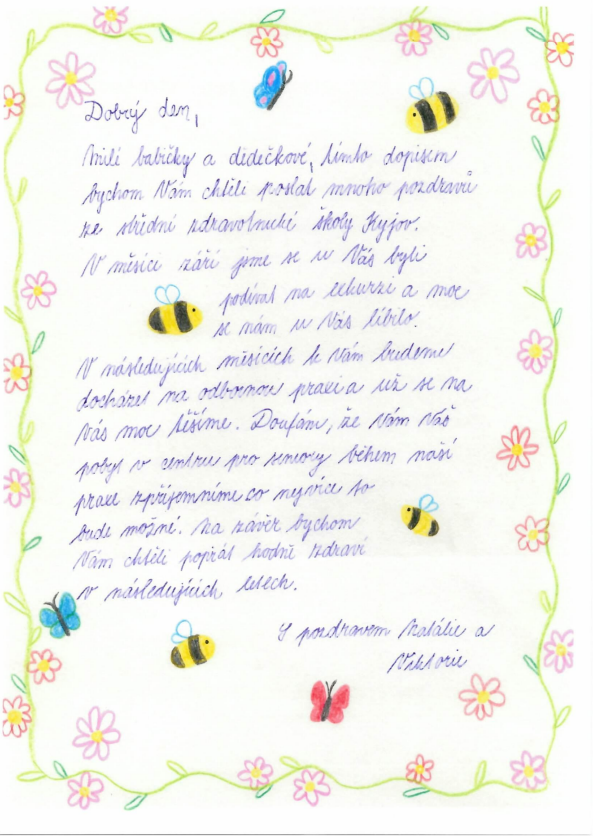 Dobrý den,
milé babičky a dědečkové, tímto dopisem
bychom Vám chtěli poslat mnoho pozdravů
ze střední zdravotnické školy Kyjov.
V měsíci září jsme se u Vás byli
podívat na exkurzi a moc
se nám u Vás líbilo.
V následujících měsících k Vám budeme
docházet na odbornou praxi a už se na
Vás moc těšíme. Doufám, že Vám Váš
pobyt v centru pro seniory během naší
praxe zpříjemníme co nejvíce to
bude možné. Na závěr bychom
Vám chtěli popřát hodně zdraví
v následujících letech.
S pozdravem Natálie a
Viktorie